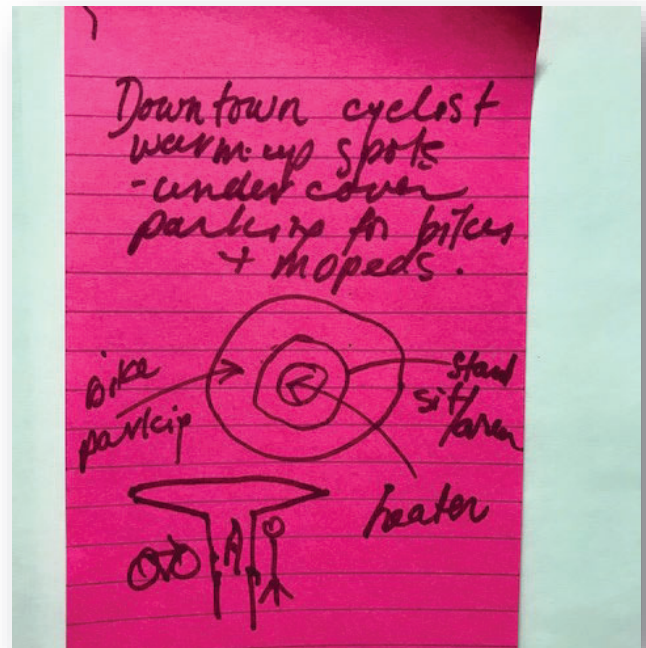 Downtown cyclist
warm-up spots
- under cover
parking for bikes
+ mopeds.
bike
parking
stand
sit/
area
heater